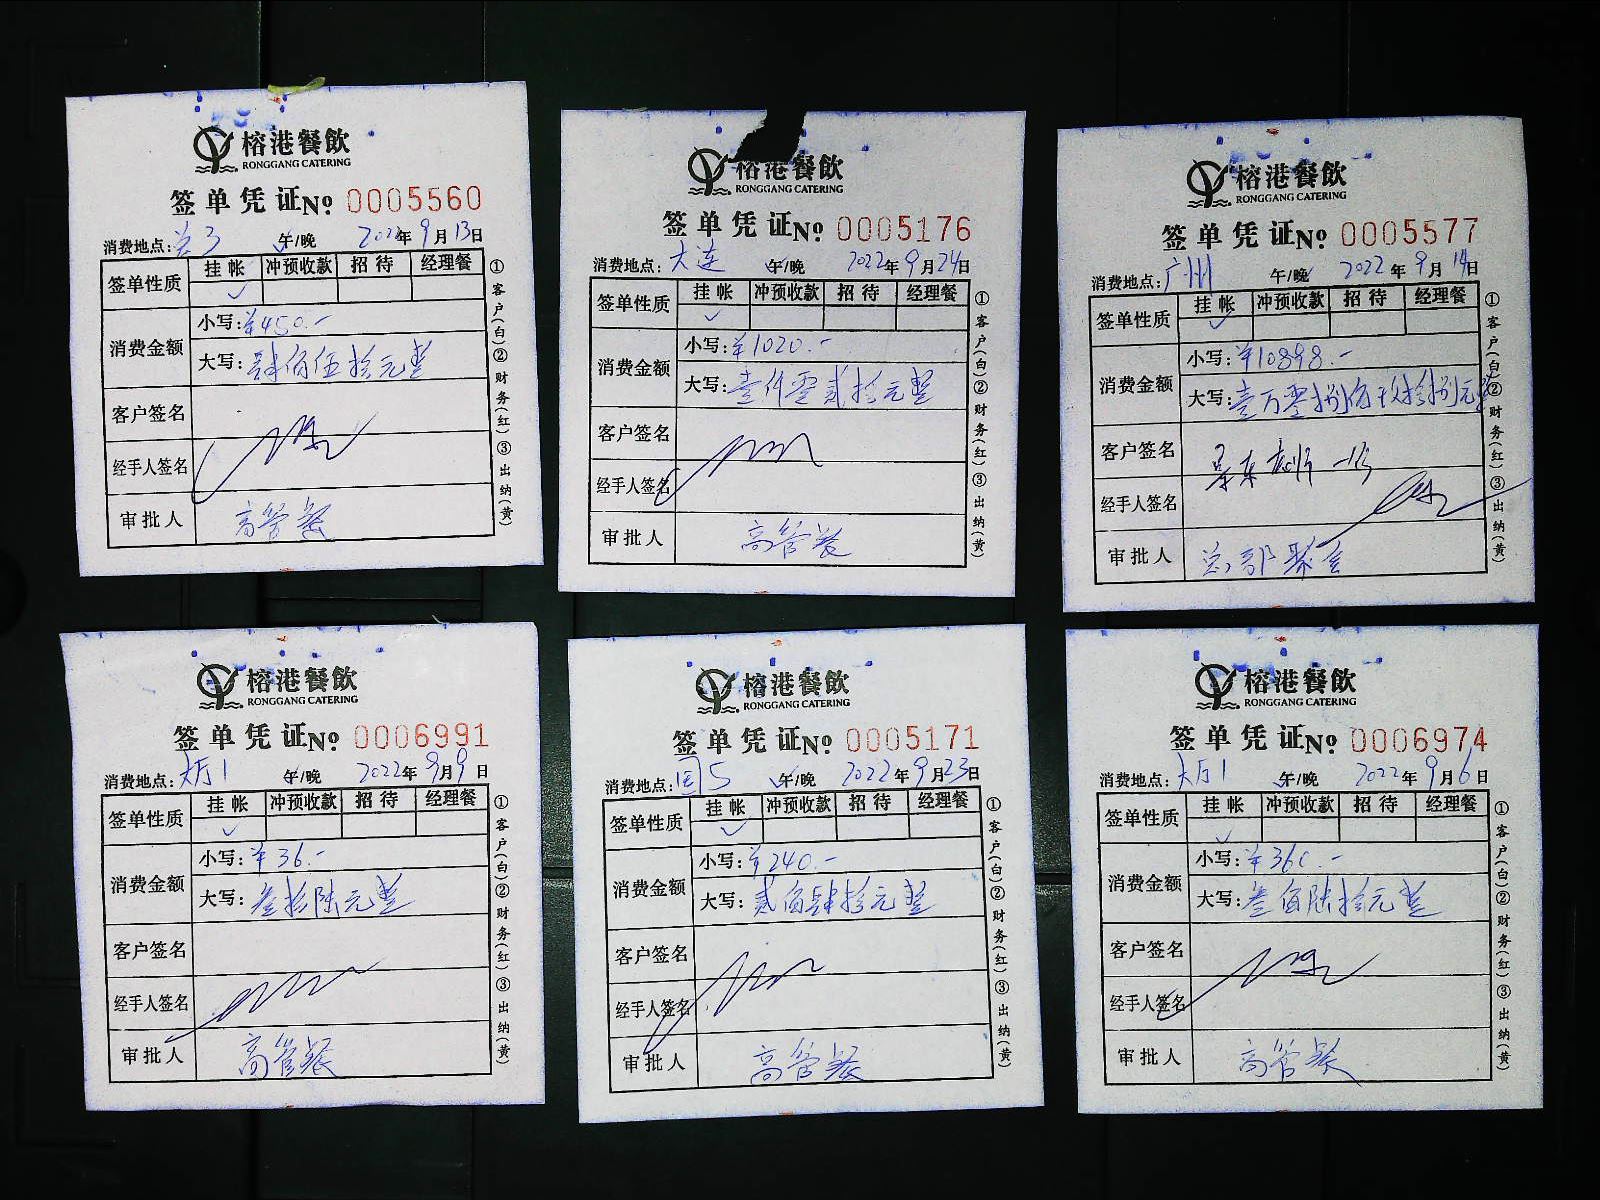 榕港餐飲
RONGGANG CATERING
签单凭证No 0005560
消费地点: 3 午/晚 2022年9月13日
签单性质 挂帐 冲预收款 招待 经理餐
✓
消费金额 小写:¥450.-
大写:肆佰伍拾元整
客户签名
经手人签名
审批人 高管餐
①客户(白)②财务(红)③出纳(黄)
榕港餐飲
RONGGANG CATERING
签单凭证No 0005176
消费地点:大连 午/晚 2022年9月24日
签单性质 挂帐 冲预收款 招待 经理餐
✓
消费金额 小写:¥1020.-
大写:壹仟零贰拾元整
客户签名
经手人签名
审批人 高管餐
①客户(白)②财务(红)③出纳(黄)
榕港餐飲
RONGGANG CATERING
签单凭证No 0005577
消费地点:广州 午/晚 2022年9月14日
签单性质 挂帐 冲预收款 招待 经理餐
✓
消费金额 小写:¥10898.-
大写:壹万零捌佰玖拾捌元整
客户签名
经手人签名
审批人 总部聚会
①客户(白)②财务(红)③出纳(黄)
榕港餐飲
RONGGANG CATERING
签单凭证No 0006991
消费地点:大厅1 午/晚 2022年9月9日
签单性质 挂帐 冲预收款 招待 经理餐
✓
消费金额 小写:¥36.-
大写:叁拾陆元整
客户签名
经手人签名
审批人 高管餐
①客户(白)②财务(红)③出纳(黄)
榕港餐飲
RONGGANG CATERING
签单凭证No 0005171
消费地点: 5 午/晚 2022年9月23日
签单性质 挂帐 冲预收款 招待 经理餐
✓
消费金额 小写:¥240.-
大写:贰佰肆拾元整
客户签名
经手人签名
审批人 高管餐
①客户(白)②财务(红)③出纳(黄)
榕港餐飲
RONGGANG CATERING
签单凭证No 0006974
消费地点:大厅1 午/晚 2022年9月6日
签单性质 挂帐 冲预收款 招待 经理餐
✓
消费金额 小写:¥360.-
大写:叁佰陆拾元整
客户签名
经手人签名
审批人 高管餐
①客户(白)②财务(红)③出纳(黄)